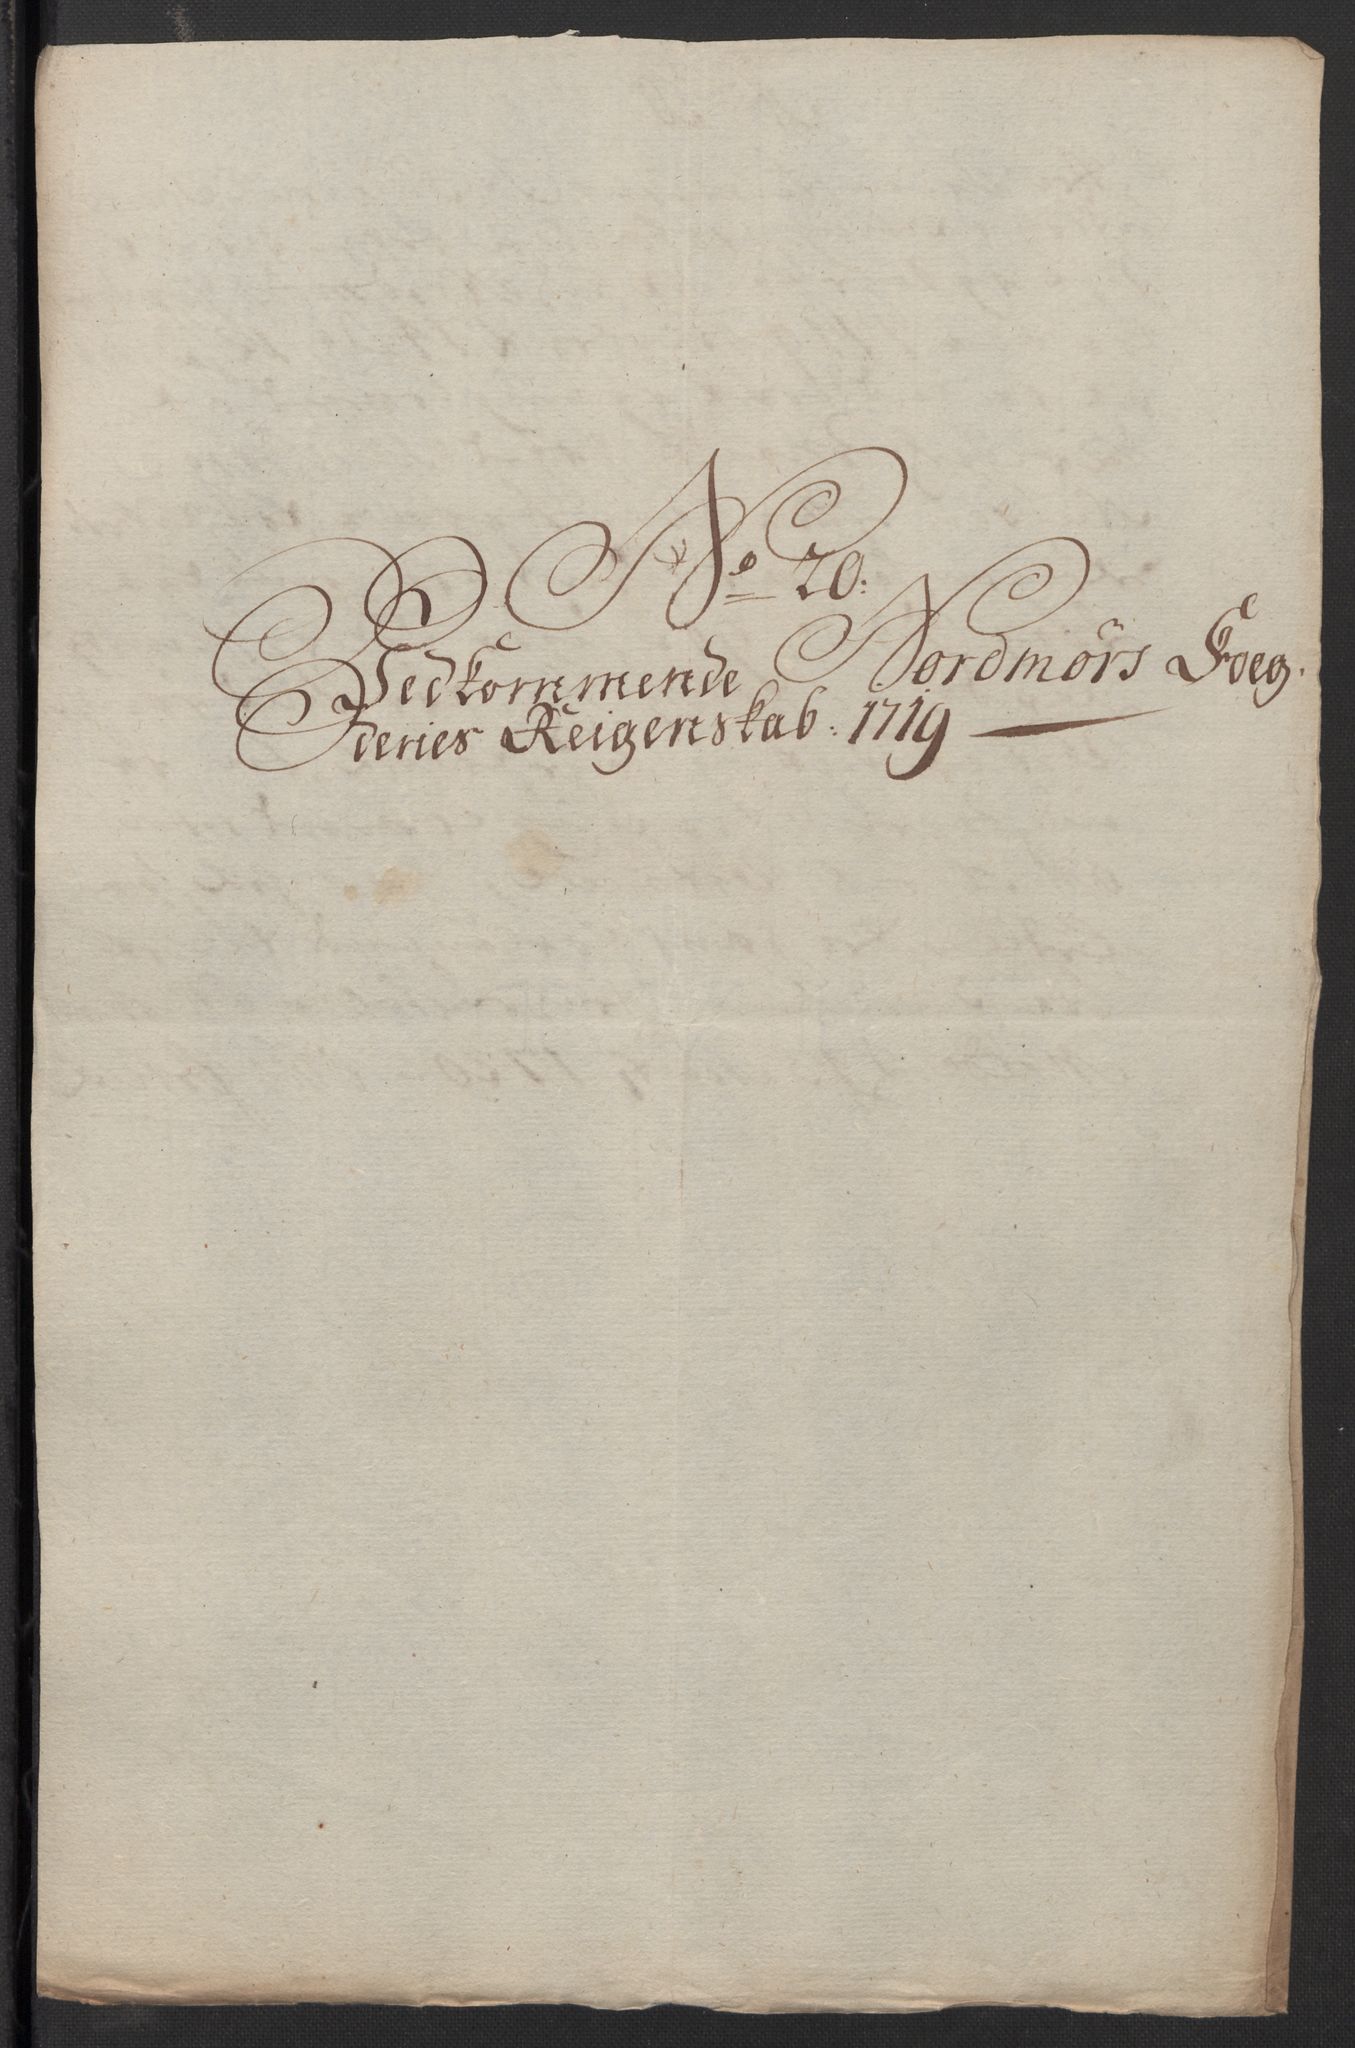 No 20:
Vedkommende Nordmörs Foeg.
deries Reigenskab. 1719